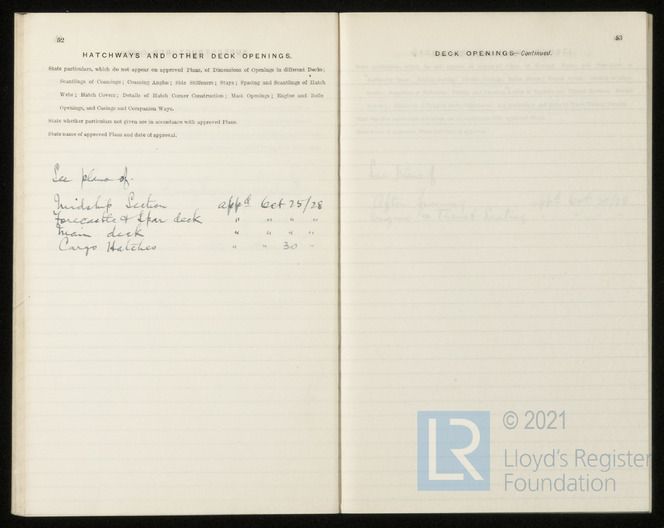 52
HATCHWAYS AND OTHER DECK OPENINGS.
State particulars, which do not appear on approved Plans, of Dimensions of Openings in different Decks;
Scantlings of Coamings; Coaming Angles; Side Stiffeners; Stays; Spacing and Scantlings of Hatch
Webs; Hatch Covers; Details of Hatch Corner Construction; Mast Openings; Engine and Boiler
Openings, and Casings and Companion Ways.
State whether particulars not given are in accordance with approved Plans.
State name of approved Plans and date of approval.
See plans of-
Midship Section appd Oct 25/28
Forecastle & Spar deck " " " "
Main deck " " " "
Cargo Hatches " " 30 "
53
DECK OPENINGS—Continued.
LR
© 2021
Lloyd's Register
Foundation